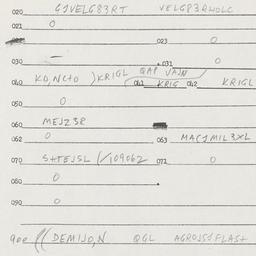 020 GJVELG83RT VELGP3RHOLC
021 O
023 O
030 — 031 O
040 KO,NC+O )KRIGL QAP VAJN
041 KRIG 042 KRIGL
050 O
060 MEJZ3R
062 O 063 MACJMIL3XL
070 S+TEJSL (/109062 071 O
080 O
090 O
900 ((DEMIJO,N QGL AGROJSJFLAS+